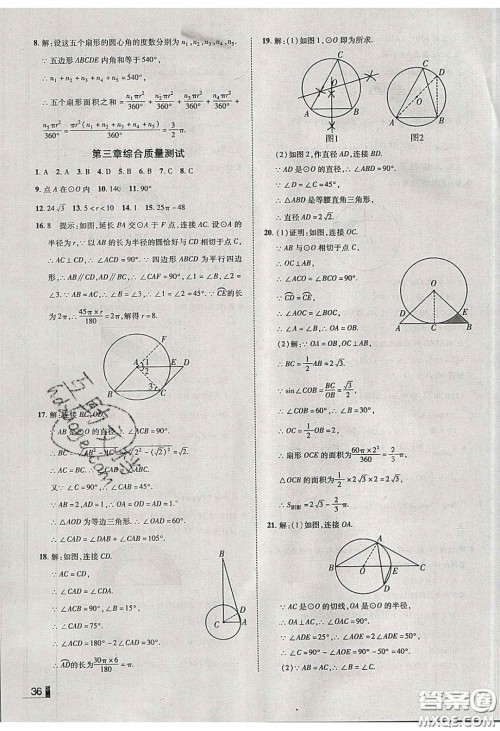 8. 解:设这五个扇形的圆心角的度数分别为n₁,n₂,n₃,n₄,n₅.
∵ 五边形 ABCDE 内角和等于540°,
∴ n₁+n₂+n₃+n₄+n₅=540°,
∴ 五个扇形面积之和=n₁πr²/360°+n₂πr²/360°+n₃πr²/360°+n₄πr²/360°+
n₅πr²/360°=πr²(n₁+n₂+n₃+n₄+n₅)/360°=3/2π.
第三章综合质量测试
1. A 2. A 3. D 4. B 5. D 6. C 7. B 8. D
9. 点A在⊙O内 10. 140 11. 90°
12. 24√3 13. 5<r<10 14. 1.5 15. 25π-48
16. 8 提示:如图,延长PA交⊙A于F点,连接AC. 设⊙A的
半径为r,∵ 以AB的长为半径的圆恰好与CD相切于点C,
∴ AC⊥CD,∴ ∠ACD=90°. ∵ 四边形ABCD为平行四边
形,∴ AB∥CD,AD∥BC,∴ ∠CAF=90°,∠1=∠B,∠2=
∠3. ∵ AB=AC,∴ ∠B=∠3,∴ ∠1=∠2=45°. ∵ CE的长
为2π,∴ 45π×r/180=2π,解得r=8.
17. 解:连接BC,OD.
∵ AB是⊙O的直径,∴ ∠C=90°.
∴ ∠B=45°.
又∵ ∠C=90°,∴ ∠CAB=∠B=45°.
∵ AB=2,∴ OA=1,∴ OA=OD=AD=1.
∴ △AOD为等边三角形,∴ ∠OAD=60°.
∴ ∠CAD=∠OAD-∠CAB=15°.
18. 解:如图,连接CD.
∵ AC=CD,
∴ ∠A=∠CDA.
∵ ∠ACB=90°,∠B=15°,
∴ ∠CAD=75°,
∴ ∠ACD=180°-2∠A=30°.
∴ AD的长为30π×6/180=π.
36
19. 解:(1)如图1,⊙O即为所求.
C
O
A
B
图1
C
D
O
A
B
图2
(2)如图2,作直径AD,连接BD.
∵ AD是⊙O的直径,∴ ∠ABD=90°.
∵ ∠D=∠C=45°,
∴ △ABD是等腰直角三角形,
∴ 直径AD=2√3.
20. (1)证明:如图,连接OC.
∵ AB与⊙O相切于点C,
∴ OC⊥AB,
∴ ∠ACO=∠BCO=90°.
∵ CD=CE,
∴ ∠AOC=∠BOC.
∴ ∠A=∠B,∴ OA=OB.
(2)解:∵ OA=OB,OC⊥AB,
∴ BC=1/2AB=2√3.
∵ sin∠COB=BC/OB=2√3/4=√3/2,
∴ ∠COB=60°,∴ ∠B=30°,
∴ OC=1/2OB=2.
∴ 扇形OCE的面积为60π×2²/360=2π/3,
△OCB的面积为1/2×2√3×2=2√3,
∴ S阴影=2√3-2/3π.
21. 解:(1)如图,连接OA.
∵ AC是⊙O的切线,OA是⊙O的半径,
∴ OA⊥AC,∴ ∠OAC=90°.
(2)∵ AB=AC,∴ ∠B=∠C.
答案圈
MXQE.COM